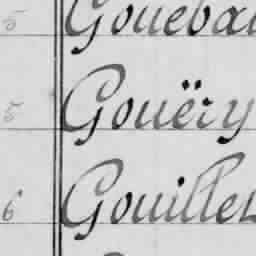 5 Gouebau
5 Gouëry
6 Gouillet